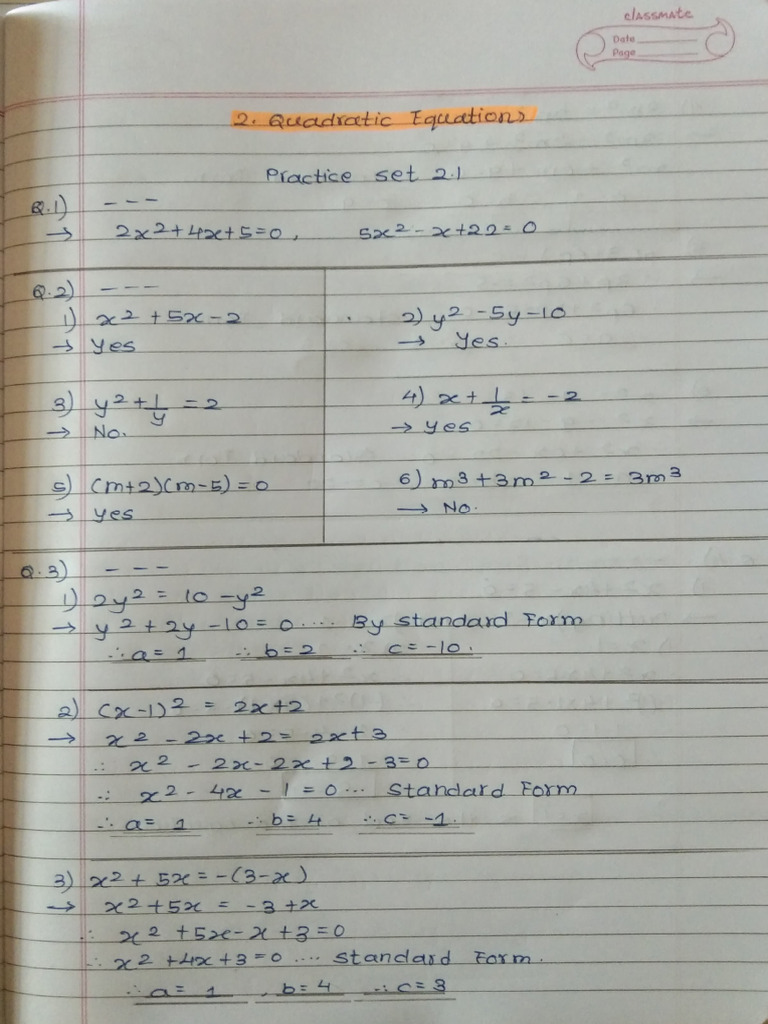 classmate
Date
Page
2. Quadratic Equations
Practice set 2.1
Q.1) ---
→ 2x²+4x+5=0, 5x²-x+22=0
Q.2) ---
1) x²+5x-2
→ Yes
2) y²-5y-10
→ Yes.
3) y²+1/y=2
→ No.
4) x+1/x=-2
→ Yes
5) (m+2)(m-5)=0
→ Yes
6) m³+3m²-2=3m³
→ No.
Q.3) ---
1) 2y²=10-y²
→ y²+2y-10=0.... By Standard Form
∴a=1 ∴b=2 ∴c=-10.
2) (x-1)²=2x+2
→ x²-2x+2=2x+3
∴ x²-2x-2x+2-3=0
∴ x²-4x-1=0... Standard Form
∴a=1 ∴b=4 ∴c=-1.
3) x²+5x=-(3-x)
→ x²+5x=-3+x
∴ x²+5x-x+3=0
∴ x²+4x+3=0.... Standard Form.
∴a=1, b=4 ∴c=3